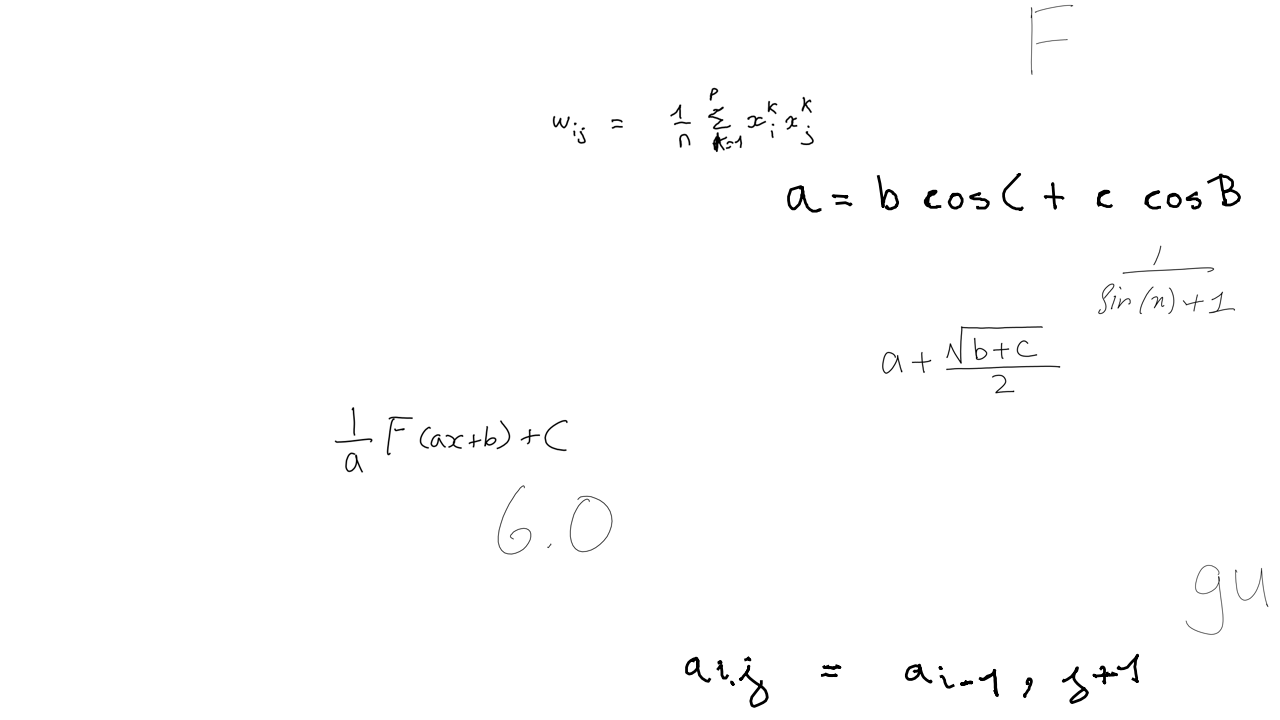 F
w_{ij} = \frac{1}{n} \sum_{k=1}^{p} x_i^k x_j^k
a = b cos C + c cos B
\frac{1}{sin(n)+1}
a + \frac{\sqrt{b+c}}{2}
\frac{1}{a} F(ax+b) + C
6.0
gu
a_{i,j} = a_{i-1, j+1}